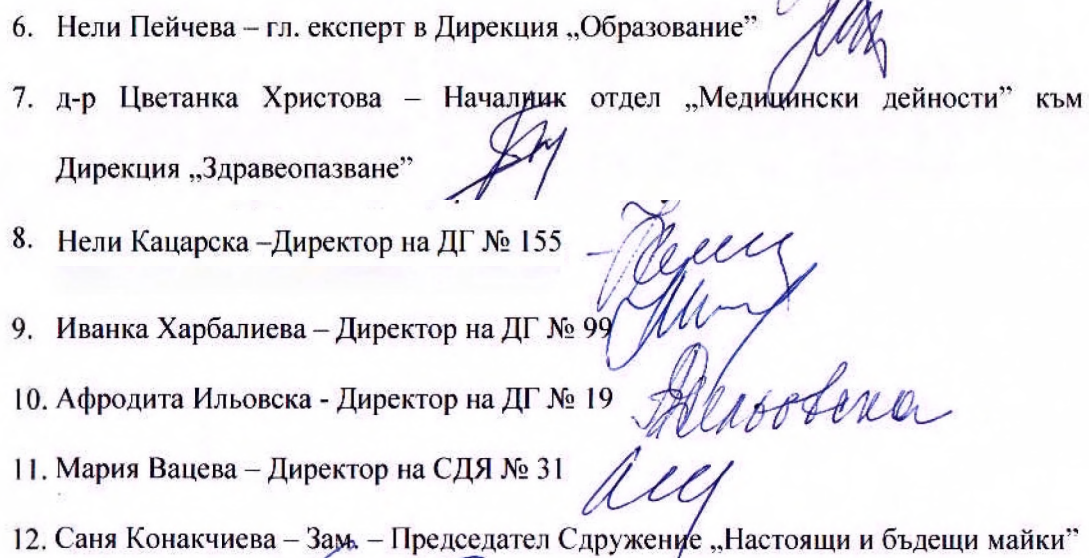 6. Нели Пейчева – гл. експерт в Дирекция „Образование”
7. д-р Цветанка Христова – Началник отдел „Медицински дейности” към
Дирекция „Здравеопазване”
8. Нели Кацарска –Директор на ДГ № 155
9. Иванка Харбалиева – Директор на ДГ № 99
10. Афродита Ильовска - Директор на ДГ № 19
11. Мария Вацева – Директор на СДЯ № 31
12. Саня Конакчиева – Зам. – Председател Сдружение „Настоящи и бъдещи майки”